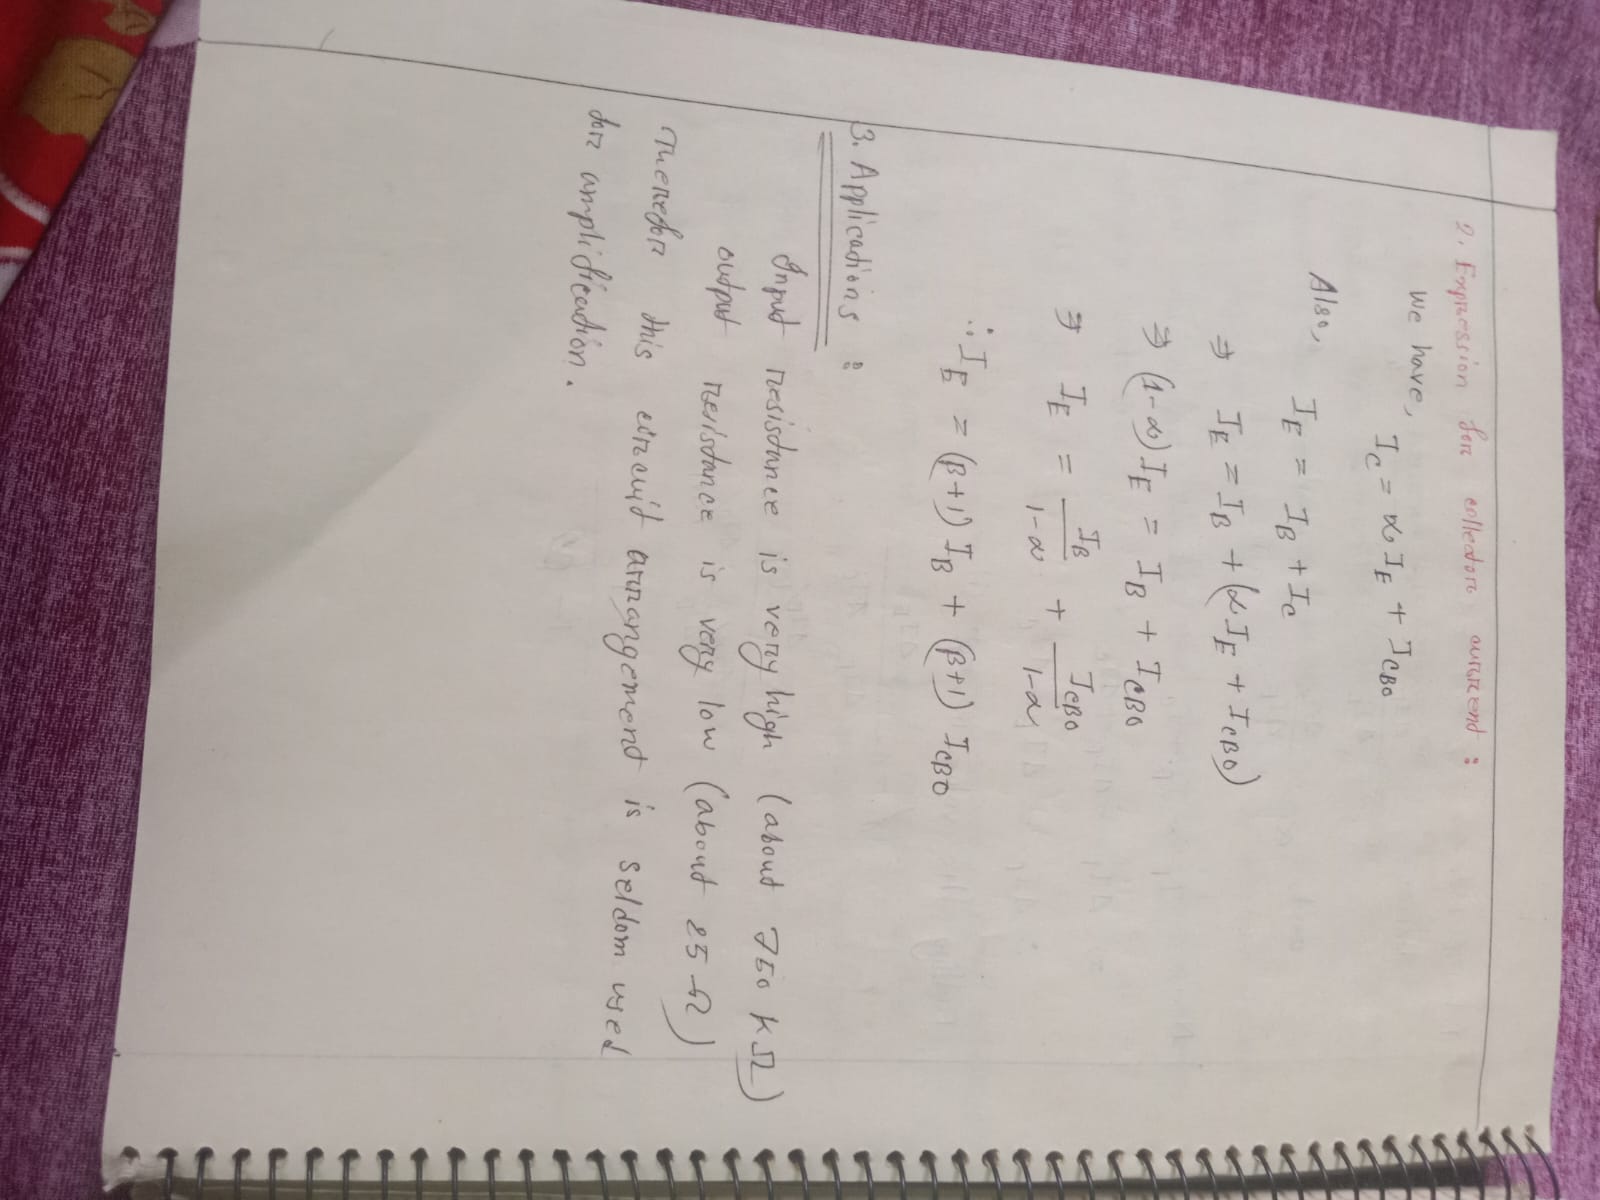 2. Expression for collector current :
We have,
I_C = α I_E + I_CBO
Also,
I_E = I_B + I_C
⇒ I_E = I_B + (α I_E + I_CBO)
⇒ (1-α) I_E = I_B + I_CBO
⇒ I_E = I_B/1-α + I_CBO/1-α
∴ I_E = (β+1) I_B + (β+1) I_CBO
3. Applications :
Input resistance is very high (about 750 KΩ)
output resistance is very low (about 25 Ω)
Therefor this circuit arrangement is seldom used
for amplification.